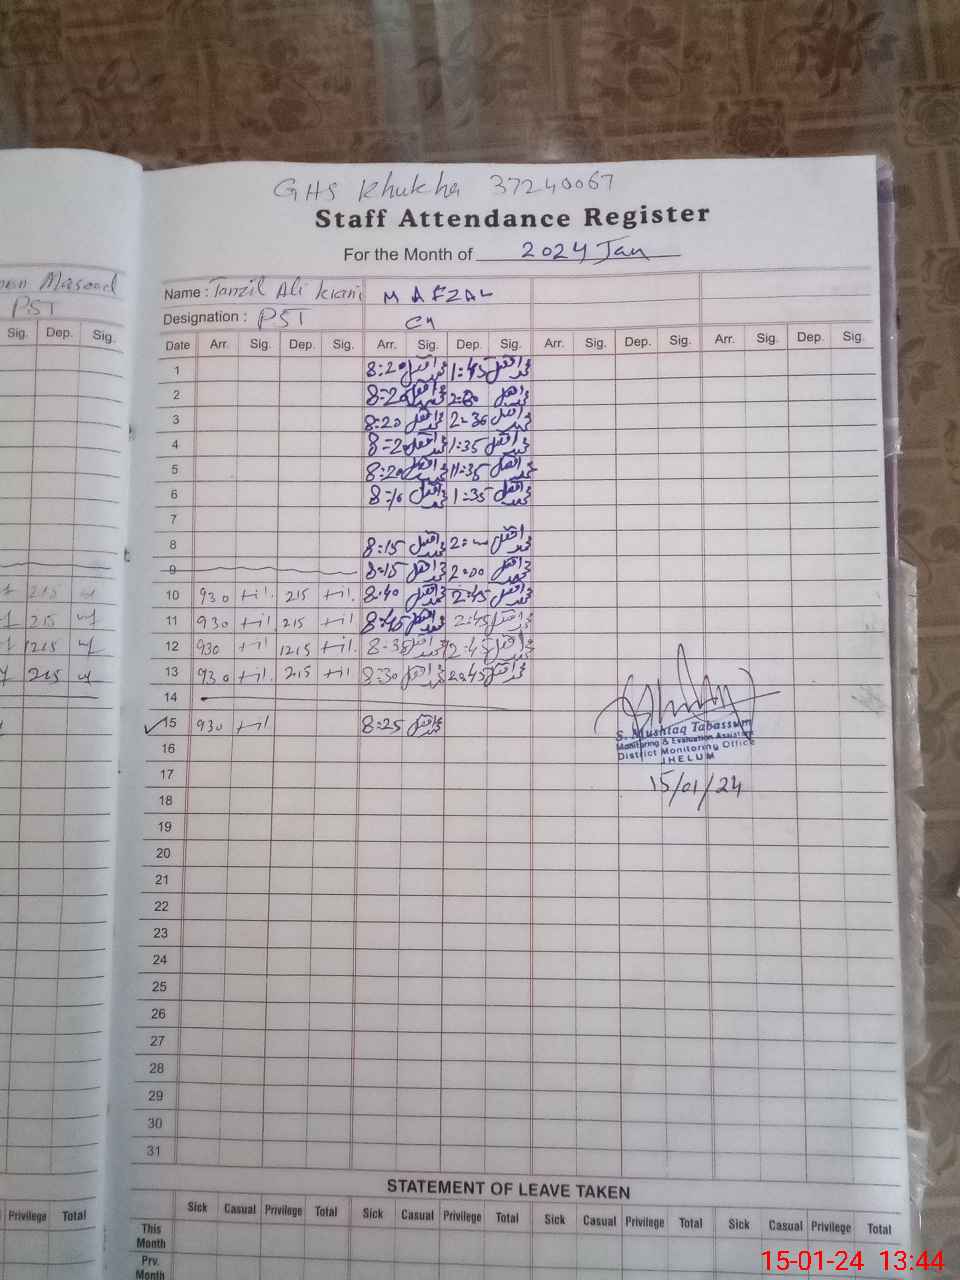 GHS Khukha 37240067
Staff Attendance Register
For the Month of 2024 Jan
Masood
PST
Sig. Dep. Sig.
Name : Tanzil Ali Kiani M AFZAL
Designation : PST
Date Arr. Sig. Dep. Sig. Arr. Sig. Dep. Sig. Arr. Sig. Dep. Sig. Arr. Sig. Dep. Sig.
1 8:20 محمد افضل 1:45 محمد افضل
2 8:20 محمد افضل محمد افضل
3 8:20 محمد افضل 2:30 محمد افضل
4 8:20 محمد افضل 1:35 محمد افضل
5 8:20 محمد افضل 11:35 محمد افضل
6 8:10 محمد افضل 1:35 محمد افضل
7
8 8:15 محمد افضل محمد افضل
9 8:15 محمد افضل 2:00 محمد افضل
215 10 930 215 8:40 محمد افضل 2:45 محمد افضل
215 11 930 215 8:45 محمد افضل 2:45 محمد افضل
1215 12 930 1215 8:35 محمد افضل 2:45 محمد افضل
215 13 930 215 8:30 محمد افضل 2:45 محمد افضل
14
15 930 8:25 محمد افضل
S. Mushtaq Tabassum
Monitoring & Evaluation Assistant
District Monitoring Office
JHELUM
15/01/24
16
17
18
19
20
21
22
23
24
25
26
27
28
29
30
31
STATEMENT OF LEAVE TAKEN
Privilege Total Sick Casual Privilege Total Sick Casual Privilege Total Sick Casual Privilege Total Sick Casual Privilege Total
This Month
Prv. Month
15-01-24 13:44